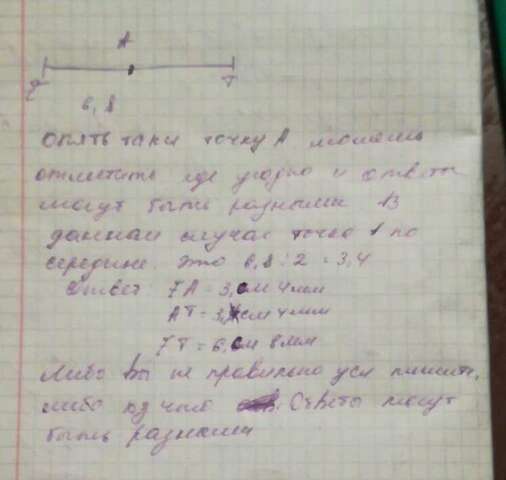 A
T
6,8
Опять таки точку А можешь
отметить где угодно и ответы
могут быть разными. В
данном случае точка А по
середине. Это 6,8:2=3,4
Ответ: 7А=3,см 4мм
АТ=3,см 4мм
7Т=6,см 8мм
Либо вы не правильно пишите,
либо Ответы могут
быть разными